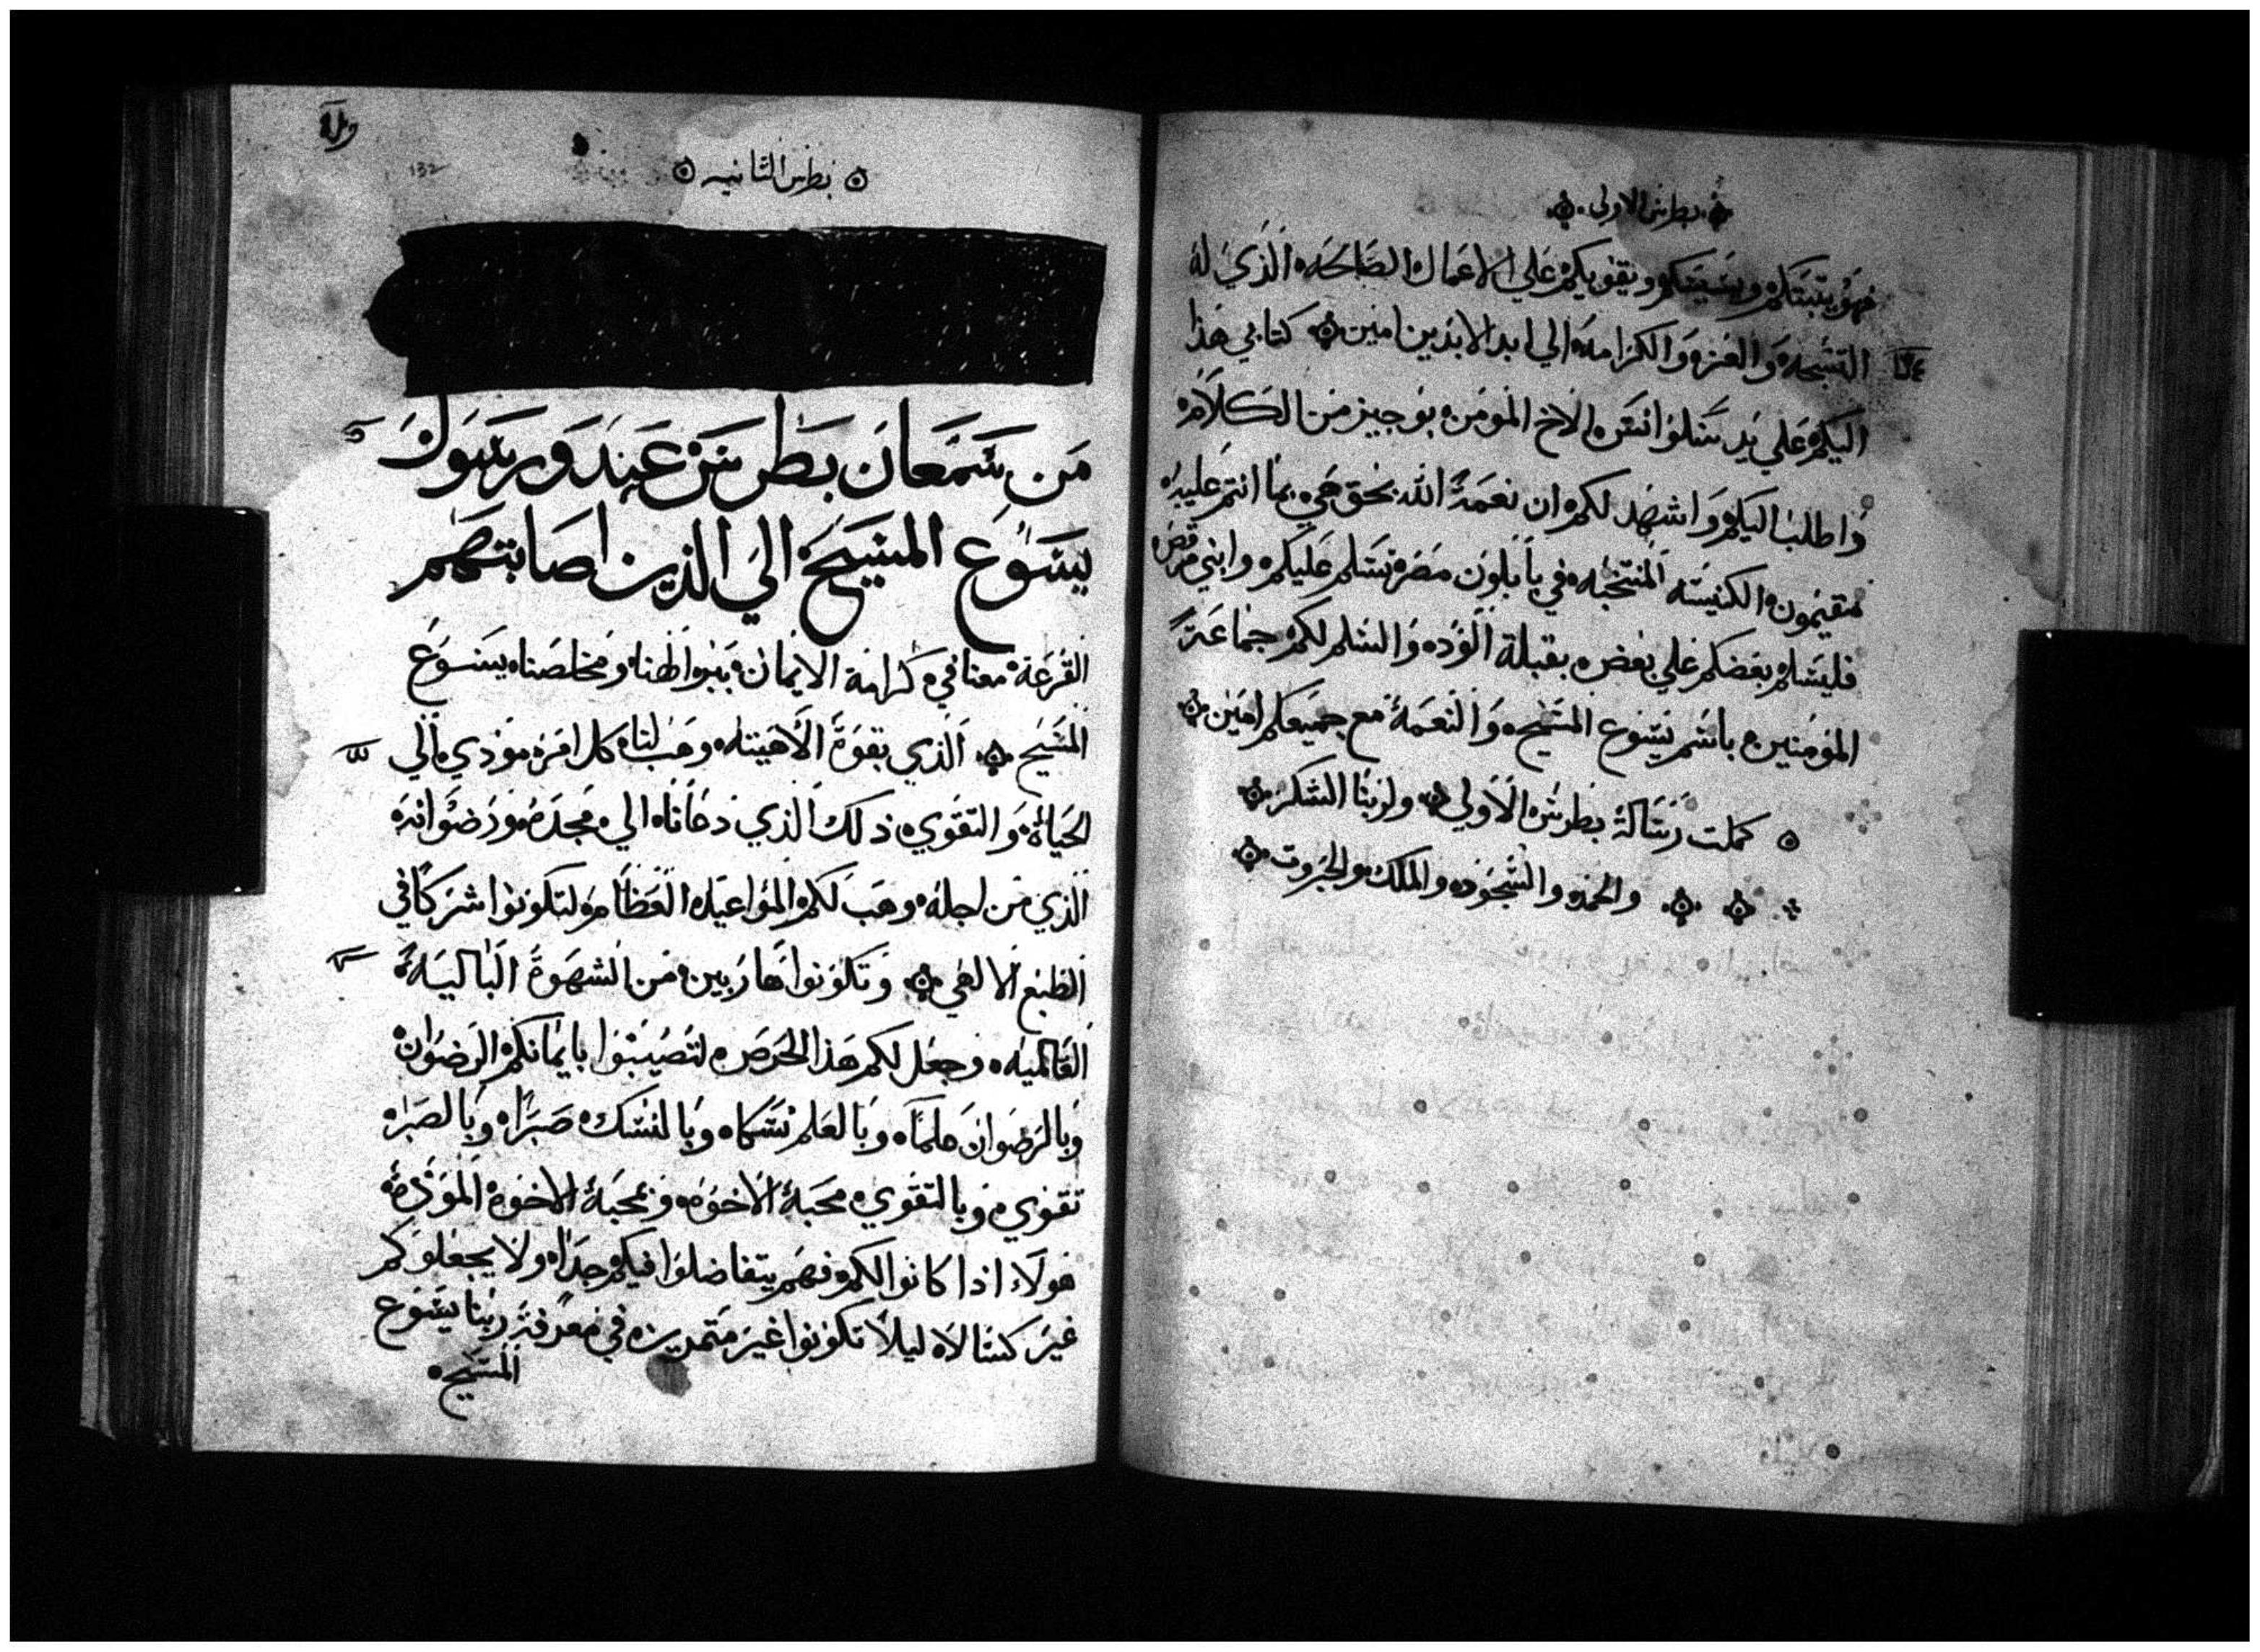 بطرس الاولى
فهو يثبتكم ويشيعكم ويقويكم على الاعمال الصالحه الذي له
التسبحه والعزه والكرامه الي ابد الابدين امين كتابي هذا
اليكم علي يد سلوانس الاخ المومن بوجيز من الكلام
واطلب اليكم واشهد لكم ان نعمة الله بحق هي بما انتم عليه
مقيمون الكنيسه المنتخبه في بابلون مصر تسلم عليكم وابني مرقص
فليسلم بعضكم علي بعض بقبلة الوده والسلم لكم جماعة
المومنين باسم يسوع المسيح والنعمة مع جميعكم امين
كملت رسالة بطرس الاولي ولربنا الشكر
والحمد والسجود والملك والجبروت
بطرس الثانيه
132
من سمعان بطرس عبد ورسول
يسوع المسيح الي الذين اصابتهم
القرعة معنا في كرامة الايمان ببر الهنا ومخلصنا يسوع
المسيح الذي بقوة الاهيته وهب لنا كل امر مودي الي
الحياة والتقوي ذلك الذي دعانا الي مجده ورضوانه
الذي من اجله وهب لكم المواعيد العظام لتكونوا شركا في
الطبع الالهي وتكونوا هاربين من الشهوة الباليه
العالميه وجعل لكم هذا الحرص لتصيبوا بايمانكم الرضوان
وبالرضوان علما وبالعلم نسكا وبالنسك صبرا وبالصبر
تقوي وبالتقوي محبة الاخوه وبمحبة الاخوة المودة
هولاء اذا كانوا لكم وفهم يتفاضلوا فيكم جدا ولا يجعلوكم
غير كسالا ليلا تكونوا غير متمرين في معرفة ربنا يسوع
المسيح